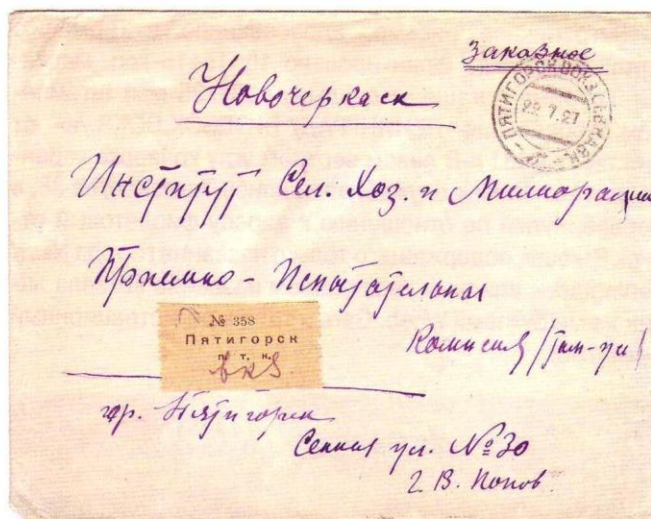 Заказное
Новочеркаск
ПЯТИГОРСК ВОКЗ. СЕВ. КАВК.
22.7.27
Институт Сел. Хоз. и Милиорации
Приемно - Испытательная
Комисия
№ 358
Пятигорск
п. т. к.
вкз
гр. Пятигорск
Сенная ул. № 30
Г В. Попов